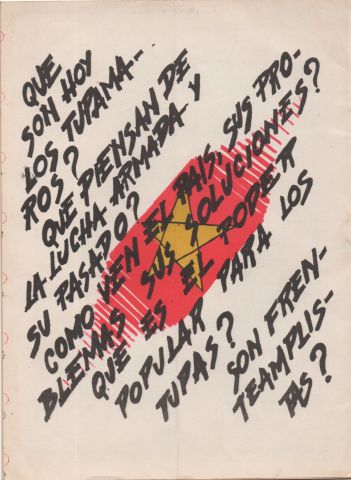 QUE
SON HOY
LOS TUPAMA-
ROS?
QUE PIENSAN DE
LA LUCHA ARMADA Y
SU PASADO?
COMO VEN EL PAIS, SUS PRO-
BLEMAS SUS SOLUCIONES?
QUE ES EL PODER
POPULAR PARA LOS
TUPAS?
SON FREN-
TEAMPLIS-
TAS?